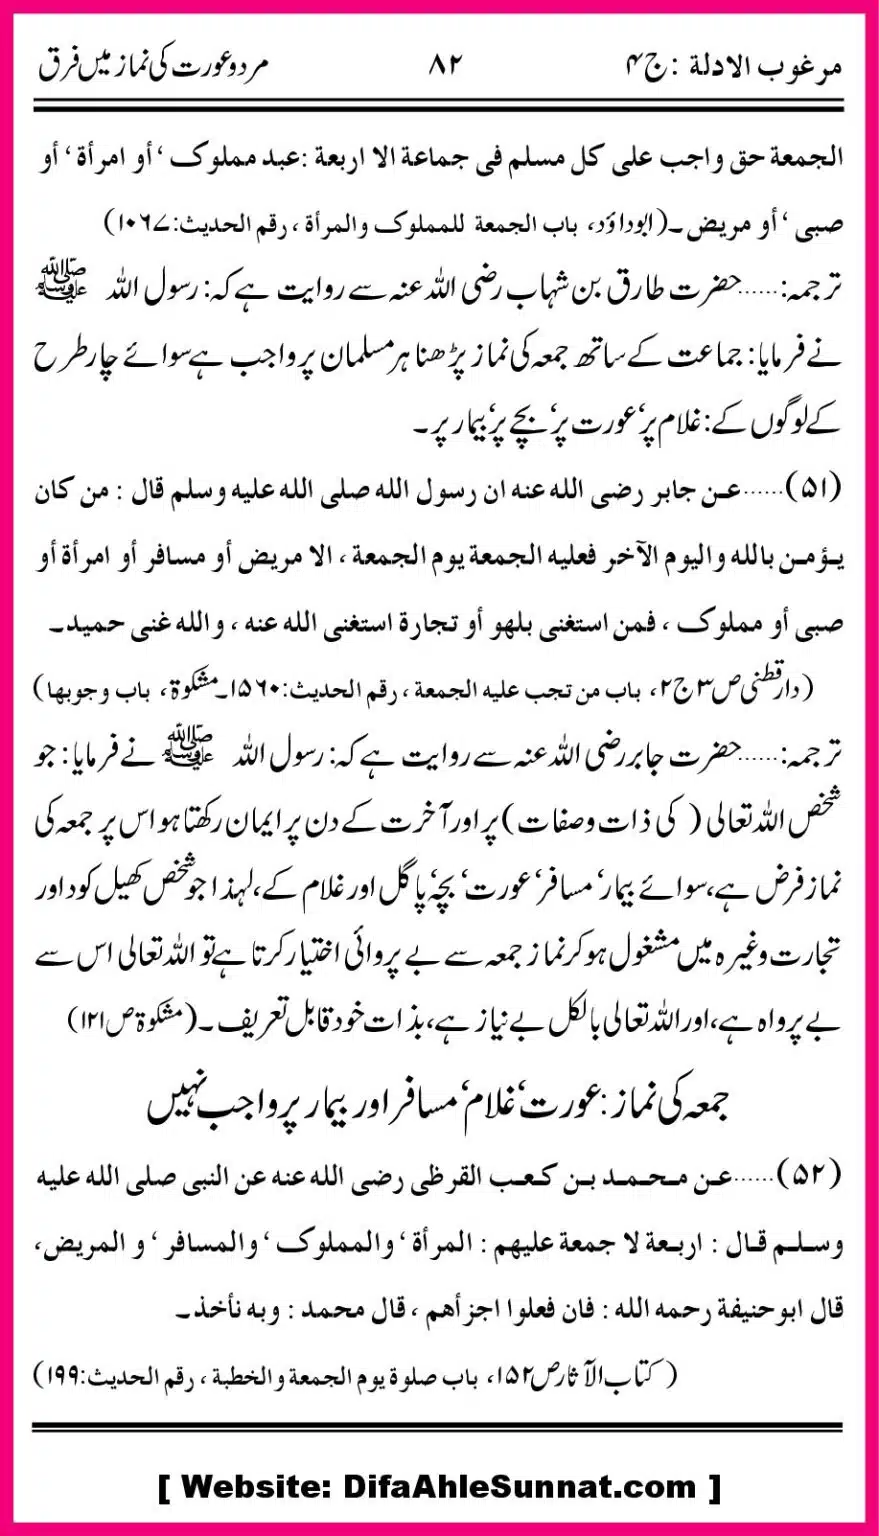 مرغوب الادلة : ج ۴ ۸۲ مرد و عورت کی نماز میں فرق
الجمعة حق واجب علی کل مسلم فی جماعة الا اربعة :عبد مملوک ‘ أو امرأة ‘ أو
صبی ‘ أو مریض۔(ابوداؤد، باب الجمعة للمملوک والمرأة ، رقم الحدیث:۱۰۶۷)
ترجمہ:......حضرت طارق بن شہاب رضی اللہ عنہ سے روایت ہے کہ: رسول اللہ ﷺ
نے فرمایا: جماعت کے ساتھ جمعہ کی نماز پڑھنا ہر مسلمان پر واجب ہے سوائے چار طرح
کے لوگوں کے: غلام پر‘ عورت پر‘ بچے پر‘ بیمار پر۔
(۵۱)......عن جابر رضی الله عنه ان رسول الله صلی الله علیه وسلم قال : من کان
یؤمن بالله والیوم الآخر فعلیه الجمعة یوم الجمعة ، الا مریض أو مسافر أو امرأة أو
صبی أو مملوک ، فمن استغنی بلهو أو تجارة استغنی الله عنه ، والله غنی حمید۔
(دارقطنی ص۳ ج۲، باب من تجب علیه الجمعة ، رقم الحدیث:۱۵۶۰۔مشکوة، باب وجوبها)
ترجمہ:......حضرت جابر رضی اللہ عنہ سے روایت ہے کہ: رسول اللہ ﷺ نے فرمایا: جو
شخص اللہ تعالی ( کی ذات وصفات) پر اور آخرت کے دن پر ایمان رکھتا ہو اس پر جمعہ کی
نماز فرض ہے، سوائے بیمار‘ مسافر‘ عورت‘ بچہ‘ پاگل اور غلام کے، لہذا جو شخص کھیل کود اور
تجارت وغیرہ میں مشغول ہو کر نماز جمعہ سے بے پروائی اختیار کرتا ہے تو اللہ تعالی اس سے
بے پرواہ ہے، اور اللہ تعالی بالکل بے نیاز ہے، بذات خود قابل تعریف۔(مشکوة ص۱۲۱)
جمعہ کی نماز: عورت‘ غلام‘ مسافر اور بیمار پر واجب نہیں
(۵۲)......عن محمد بن کعب القرظی رضی الله عنه عن النبی صلی الله علیه
وسلم قال : اربعة لا جمعة علیهم : المرأة ‘ والمملوک ‘ والمسافر ‘ و المریض،
قال ابوحنیفة رحمه الله : فان فعلوا اجزأهم ، قال محمد : وبه نأخذ۔
(کتاب الآثار ص۱۵۲، باب صلوة یوم الجمعة والخطبة ، رقم الحدیث:۱۹۹)
[ Website: DifaAhleSunnat.com ]